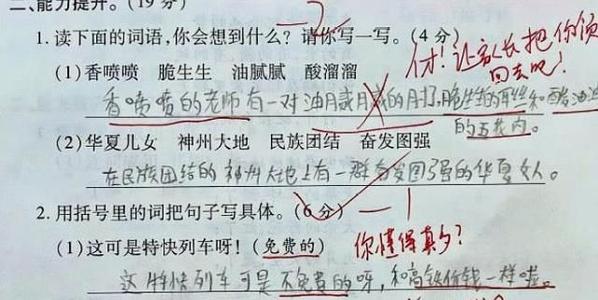 二、能力提升。(19分)
-2
1.读下面的词语,你会想到什么?请你写一写。(4分)
(1)香喷喷 脆生生 油腻腻 酸溜溜
才!让家长把你领回去吧!
香喷喷的老师有一对油
的肘子,脆生生的耳丝和酸溜溜
的五花肉。
(2)华夏儿女 神州大地 民族团结 奋发图强
在民族团结的神州大地上有一群奋发图强的华夏女人。
2.用括号里的词把句子写具体。(6分)
-1
(1)这可是特快列车呀!(免费的)
你懂得真多?
这特快列车可是不免费的呀,和高铁价钱一样啦。